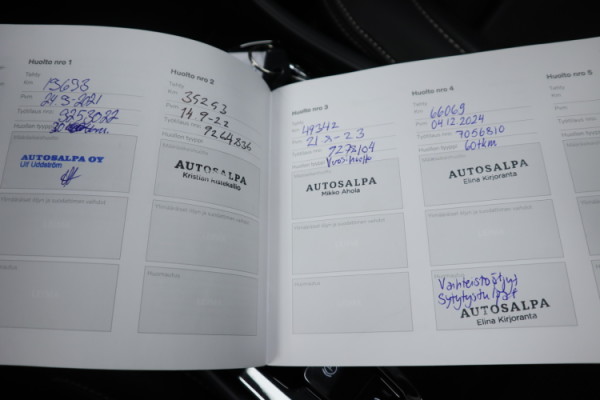 Huolto nro 1
Tehty
Km 13693
Pvm 24.9-2021
Työtilaus nro 3253027
Huollon tyyppi
AUTOSALPA OY
Ulf Uddström
Huolto nro 2
Tehty
Km 35253
Pvm 14.9-22
Työtilaus nro 9264836
Huollon tyyppi
AUTOSALPA
Kristian
Huolto nro 3
Tehty
Km 49342
Pvm 21-9-23
Työtilaus nro 7278104
Huollon tyyppi Vuosihuolto
AUTOSALPA
Mikko Ahola
Huolto nro 4
Tehty
Km 66069
Pvm 04.12.2024
Työtilaus nro 7056810
Huollon tyyppi 60tkm
AUTOSALPA
Elina Kirjoranta
Vaihteistoöljyt
Sytytystulpat
AUTOSALPA
Elina Kirjoranta
Huolto nro 5
Tehty
Km
Pvm